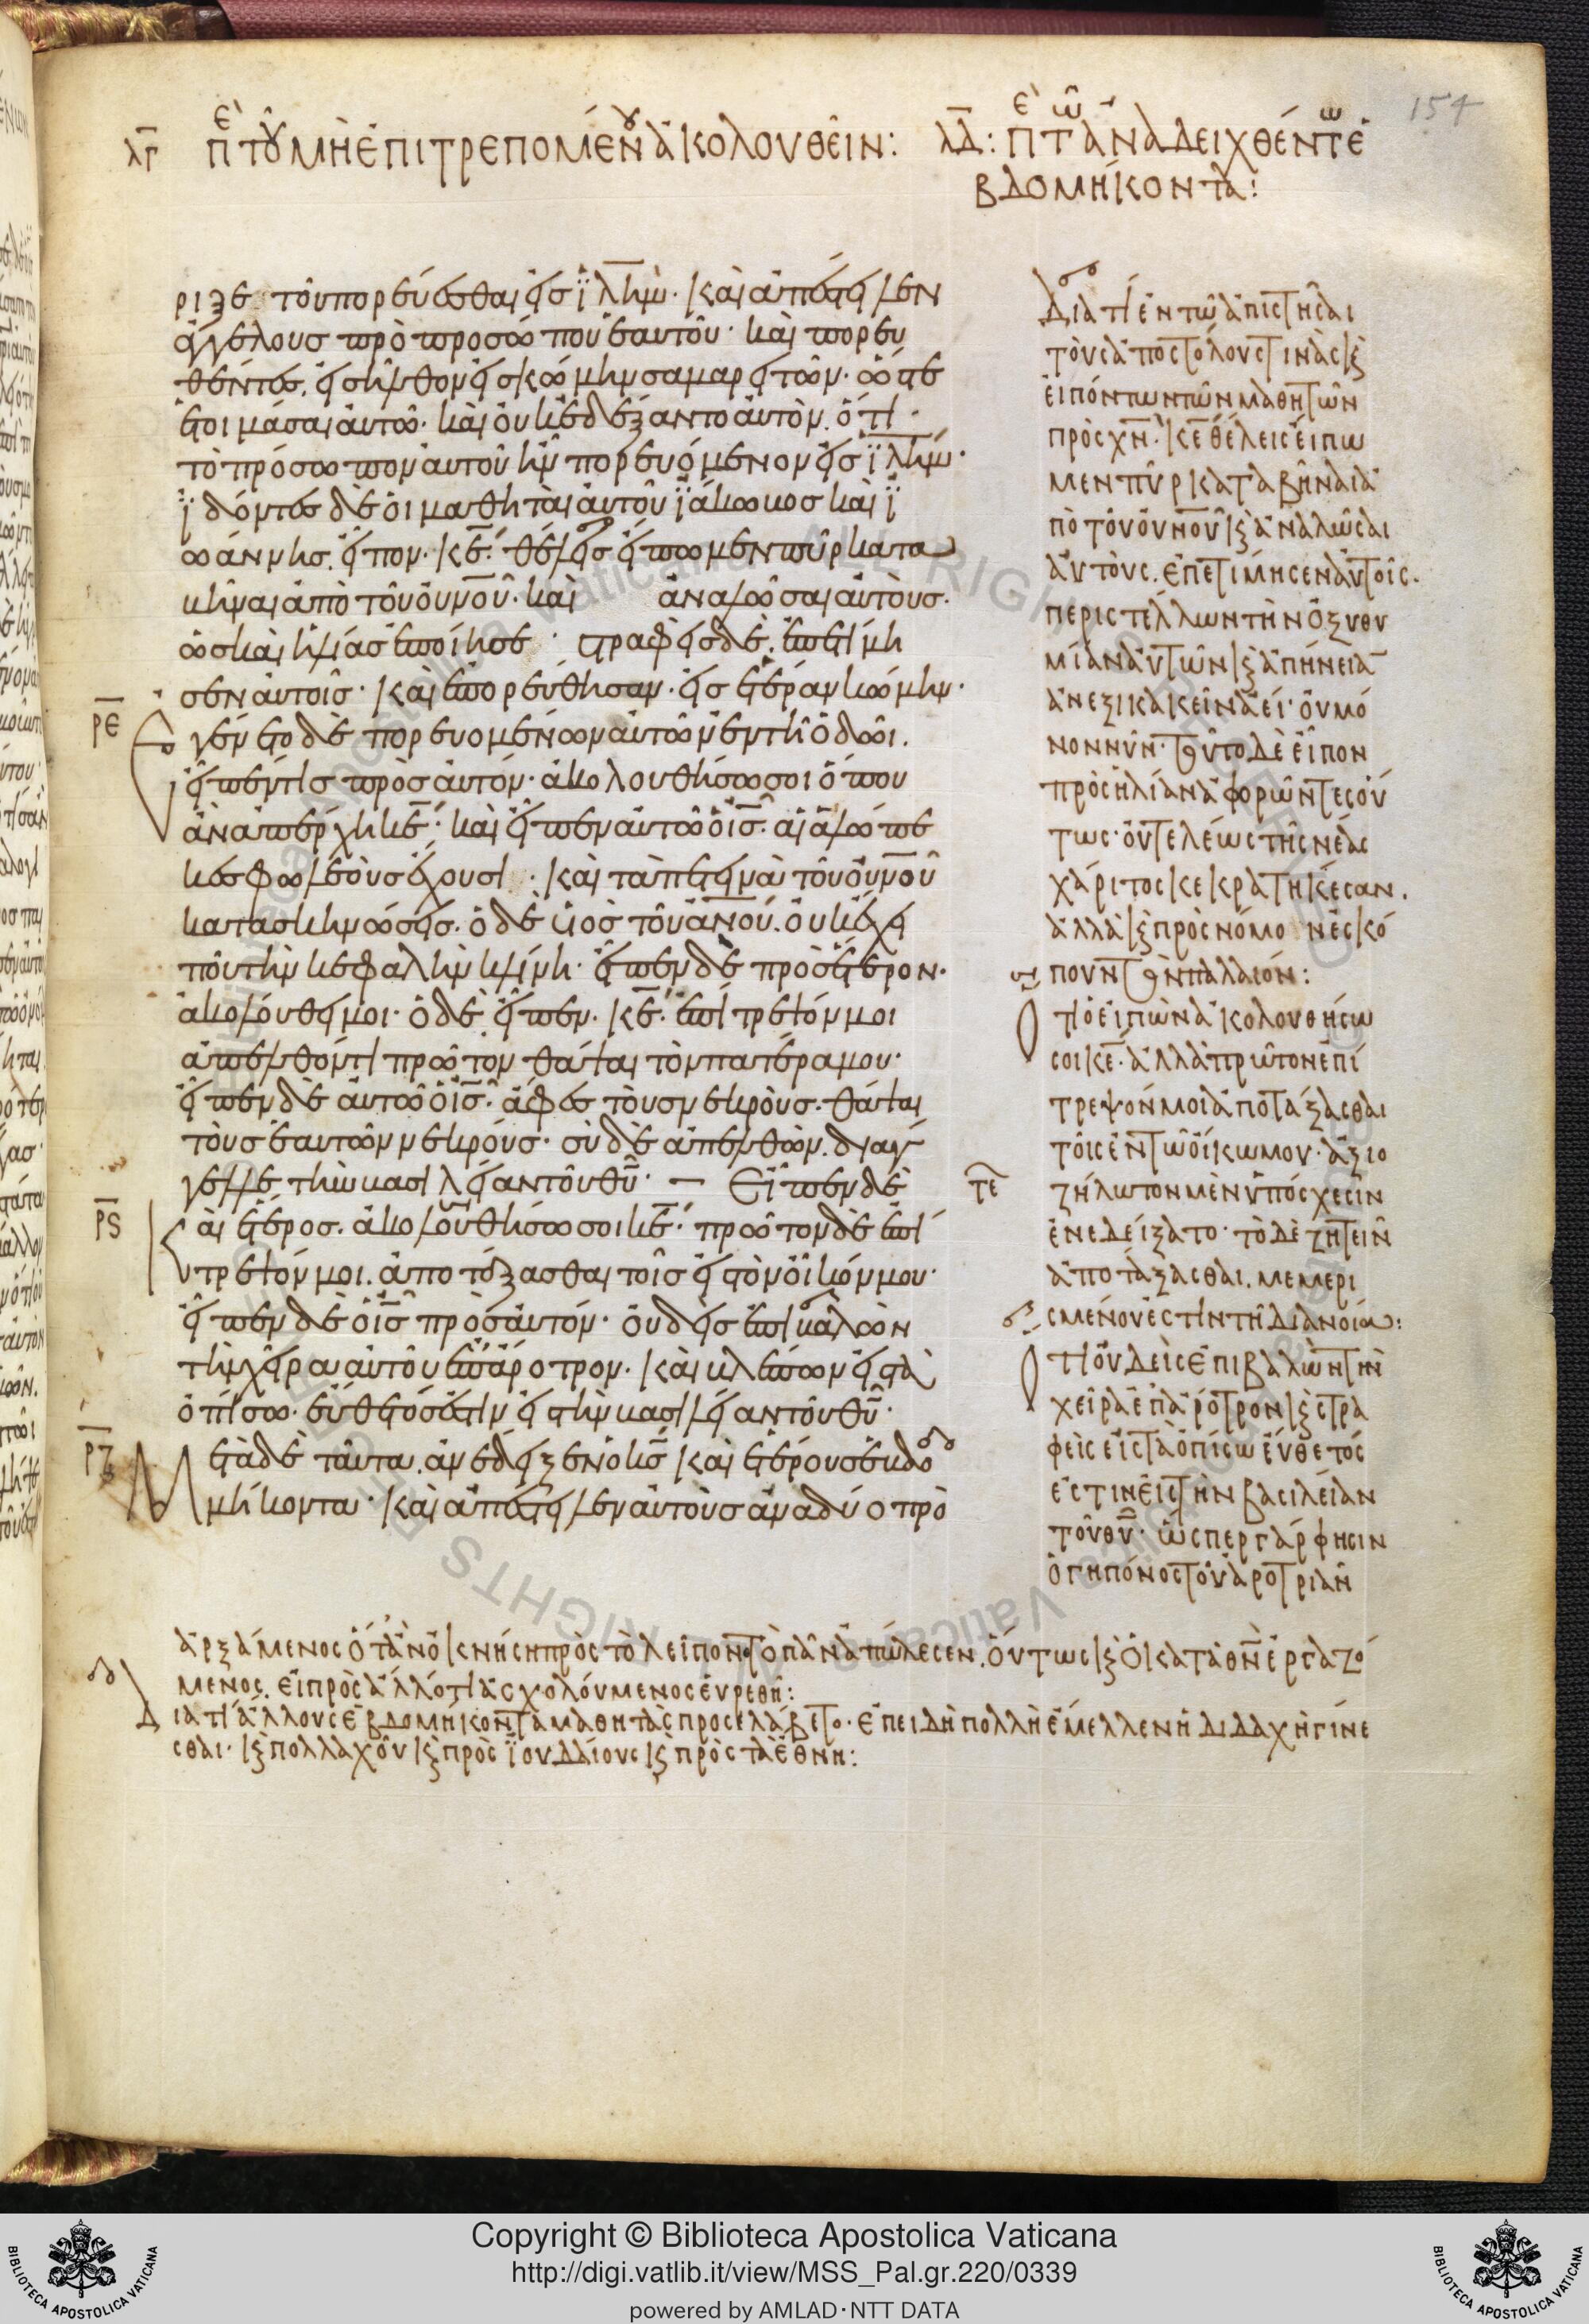 154
λγ πε τοῦ μὴ ἐπιτρεπομένου ἀκολουθεῖν: λδ: πε τῶν ἀναδειχθέντων ἑ
βδομήκοντα:
ριξε τοῦ πορεύεσθαι εἰς ϊλημ· καὶ ἀπέστειλεν
ἀγγέλους πρὸ προσώπου ἑαυτοῦ· καὶ πορευ
θέντες, εἰσῆλθον εἰς κώμην σαμαρειτῶν· ὥστε
ἑτοιμάσαι αὐτῶ· καὶ οὐκ ἐδέξαντο αὐτὸν, ὅτι
τὸ πρόσωπον αὐτοῦ ἦν πορευόμενον εἰς ϊλημ·
ϊδόντες δὲ οἱ μαθηταὶ αὐτοῦ ϊάκωβος καὶ ϊ
ωάννης, εἶπον· κε· θέλεις εἴπωμεν πῦρ κατα
βῆναι ἀπὸ τοῦ οὐνοῦ· καὶ ἀναλῶσαι αὐτοὺς·
ὡς καὶ ἠλίας ἐποίησε· στραφεὶς δὲ, ἐπετίμη
σεν αὐτοῖς· καὶ ἐπορεύθησαν· εἰς ἑτέραν κώμην·
ρε Εγένετο δὲ πορευομένων αὐτῶν ἐν τῆ ὁδῶι.
εἶπέν τις πρὸς αὐτόν· ἀκολουθήσω σοι ὅπου
ἂν ἀπέρχη κε· καὶ εἶπεν αὐτῶ ὁ ις· αἱ ἀλώπε
κες φωλεοὺς ἔχουσι· καὶ τὰ πετεινὰ τοῦ οὐνοῦ
κατασκηνώσεις· ὁ δὲ υἱος τοῦ ανου. οὐκ ἔχει
ποῦ τὴν κεφαλὴν κλίνη· εἶπεν δὲ πρὸς ἕτερον·
ἀκολούθει μοι· ὁ δὲ εἶπεν. κε· ἐπίτρεψόν μοι
ἀπελθόντι πρῶτον θάψαι τὸν πατέρα μου·
εἶπεν δὲ αὐτῶ ὁ ις· ἄφες τοὺς νεκροὺς· θάψαι
τοὺς ἑαυτῶν νεκρούς· σὺ δὲ ἀπελθὼν. διάγ
γελλε τὴν βασιλείαν τοῦ θυ· Εἶπεν δὲ
ρς καὶ ἕτερος. ἀκολουθήσω σοι κε· πρῶτον δὲ ἐπί
τρεψόν μοι. ἀποτάξασθαι τοῖς εἰς τὸν οἶκόν μου·
εἶπεν δὲ ὁ ις πρὸς αὐτόν· οὐδεὶς ἐπιβαλὼν
τὴν χεῖρα αὐτοῦ ἐπ' ἄροτρον· καὶ βλέπων εἰς τὰ
ὀπίσω· εὔθετός ἐστιν εἰς τὴν βασιλείαν τοῦ θυ·
ρζ Μετὰ δὲ ταῦτα. ἀνέδειξεν ὁ κς καὶ ἑτέρους ἑβδο
μήκοντα· καὶ ἀπέστειλεν αὐτοὺς ἀνὰ δύο πρὸ
Διατί ἐν τῶ ἀπιστῆσαι
τοὺς ἀποστόλους τινὰς καὶ
εἰπόντων τῶν μαθητῶν
πρὸς χν· κε θέλεις εἴπω
μεν πῦρ καταβῆναι ἀ
πὸ τοῦ οὐνοῦ καὶ ἀναλῶσαι
αὐτοὺς. ἐπετίμησεν αὐτοῖς·
περιστέλλων τὴν ὀξυθυ
μίαν αὐτῶν καὶ ἀπήνεια
ἀνεξικακεῖν ἀεί· οὐ μό
νον νῦν· τοῦτο δὲ εἶπον
πρὸς ἠλίαν ἀφορῶντες οὔ
τως· οὐ τελέως τῆς νέας
χάριτος κεκράτηκεσαν.
ἀλλὰ καὶ πρὸς νόμον ἐσκό
πουν τὸν παλαιόν:
τί ὁ εἰπὼν ἀκολουθήσω
σοι κε· ἀλλὰ πρῶτον ἐπί
τρεψόν μοι ἀποτάξασθαι
τε τοῖς ἐν τῶ οἴκω μου· ἀξιο
ζήλωτον μὲν ὑπόσχεσιν
ἐνεδείξατο· τὸ δὲ ζητεῖν
ἀποτάξασθαι. μεμερι
σμένον ἐστὶν τῆ διανοία:
τί οὐδεὶς ἐπιβαλὼν τὴν
χεῖρα ἐπ' ἄροτρον καὶ στρα
φεὶς εἰς τὰ ὀπίσω εὔθετός
ἐστιν εἰς τὴν βασιλείαν
τοῦ θυ· ὥσπερ γάρ φησιν
ὁ γηπόνος τοῦ ἀροτριᾶν
ἀρξάμενος ὅταν ὀκνήση πρὸς τὸ λεῖπον τὸ πᾶν ἀπώλεσεν. οὕτως καὶ ὁ κατὰ θν ἐργαζό
μενος. εἰ πρὸς ἄλλό τι ἀσχολούμενος εὑρεθῆ:
Διατί ἄλλους ἑβδομήκοντα μαθητὰς προσελάβετο· ἐπειδὴ πολλὴ ἔμελλεν ἡ διδαχὴ γίνε
σθαι· καὶ πολλαχοῦ καὶ πρὸς ϊουδαίους καὶ πρὸς τὰ ἔθνη:
Copyright © Biblioteca Apostolica Vaticana
http://digi.vatlib.it/view/MSS_Pal.gr.220/0339
powered by AMLAD·NTT DATA
BIBLIOTECA APOSTOLICA VATICANA
BIBLIOTECA APOSTOLICA VATICANA